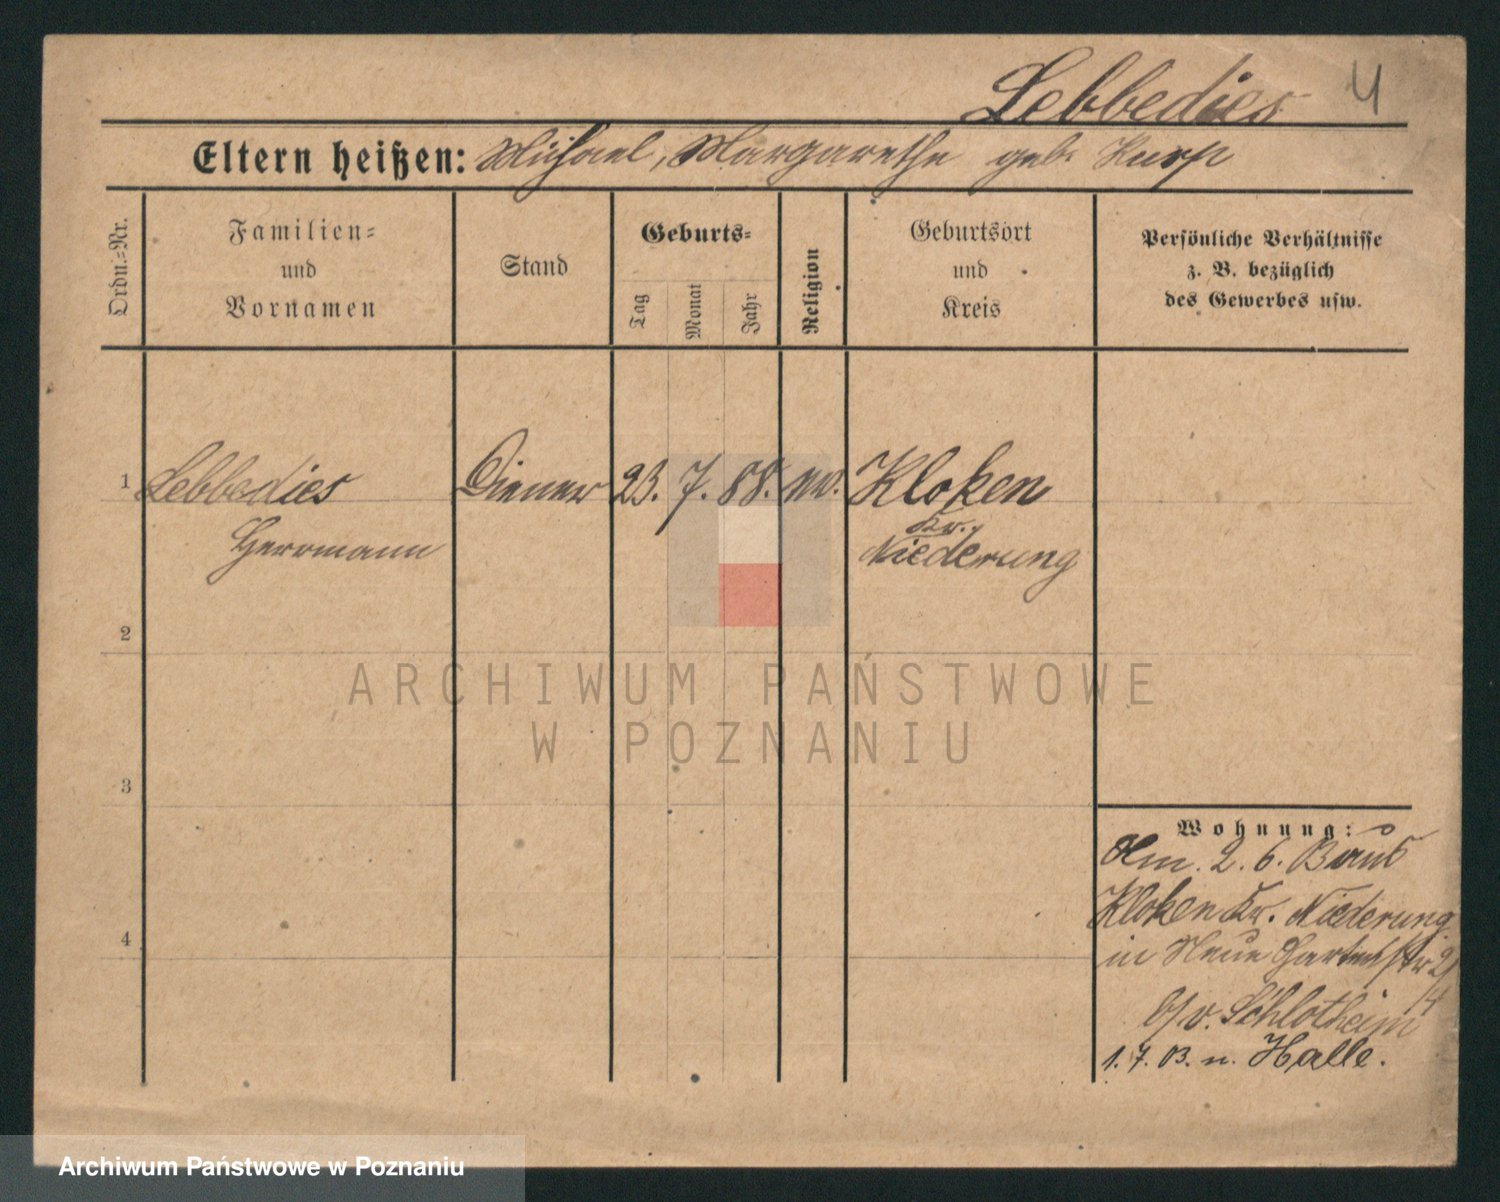 Lebbedies 4
Eltern heißen: Michael, Margarethe geb. Kurp
Ordn.-Nr.
Familien-
und
Vornamen
Stand
Geburts-
Tag
Monat
Jahr
Religion
Geburtsort
und
Kreis
Persönliche Verhältnisse
z. B. bezüglich
des Gewerbes usw.
1 Lebbedies Diener 23. 7. 88. ev. Kloken
Kr.
Herrmann Niederung
2
3
4
ARCHIWUM PAŃSTWOWE
W POZNANIU
Wohnung:
2. 6.
Kloken Kr. Niederung
in Neue Gartenstr
b/v. Schlotheim
1. 7. 03. n. Halle.
Archiwum Państwowe w Poznaniu